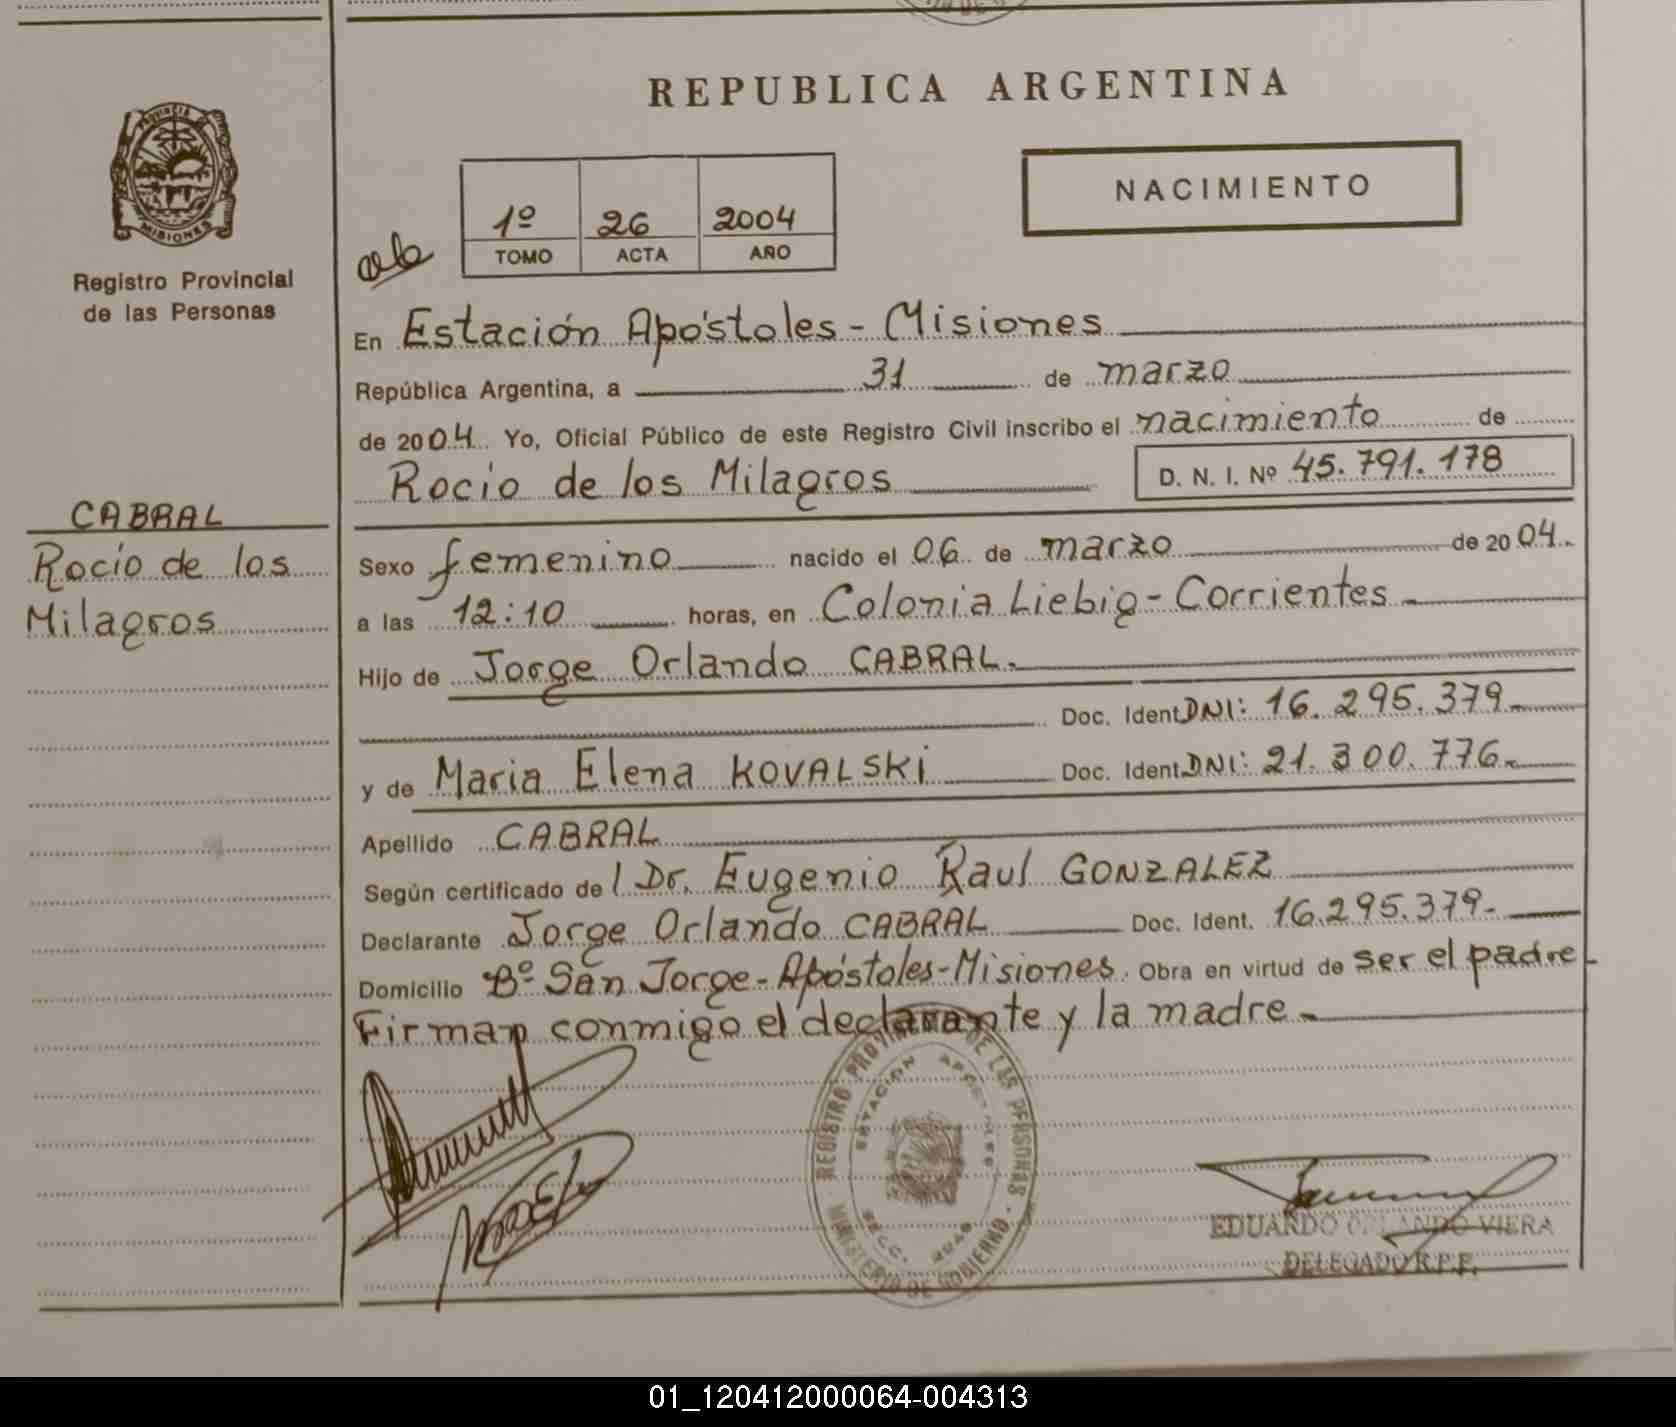 REPUBLICA ARGENTINA
NACIMIENTO
1º 26 2004
TOMO ACTA AÑO
PROVINCIA DE
MISIONES
Registro Provincial
de las Personas
En Estación Apóstoles - Misiones
República Argentina, a 31 de marzo
de 2004. Yo, Oficial Público de este Registro Civil inscribo el nacimiento de
Rocío de los Milagros D. N. I. Nº 45.791.178
CABRAL
Rocío de los
Milagros
Sexo femenino nacido el 06 de marzo de 2004.
a las 12:10 horas, en Colonia Liebig - Corrientes -
Hijo de Jorge Orlando CABRAL.
Doc. Ident DNI: 16.295.379-
y de Maria Elena KOVALSKi Doc. Ident DNI: 21.300.776-
Apellido CABRAL
Según certificado del Dr. Eugenio Raul GONZALEZ
Declarante Jorge Orlando CABRAL Doc. Ident. 16.295.379-
Domicilio Bº San Jorge - Apóstoles - Misiones. Obra en virtud de ser el padre -
Firman conmigo el declarante y la madre -
REGISTRO PROVINCIAL DE LAS PERSONAS
ESTACION APOSTOLES
MINISTERIO DE GOBIERNO
EDUARDO ORLANDO VIERA
DELEGADO R.P.P.
01_120412000064-004313